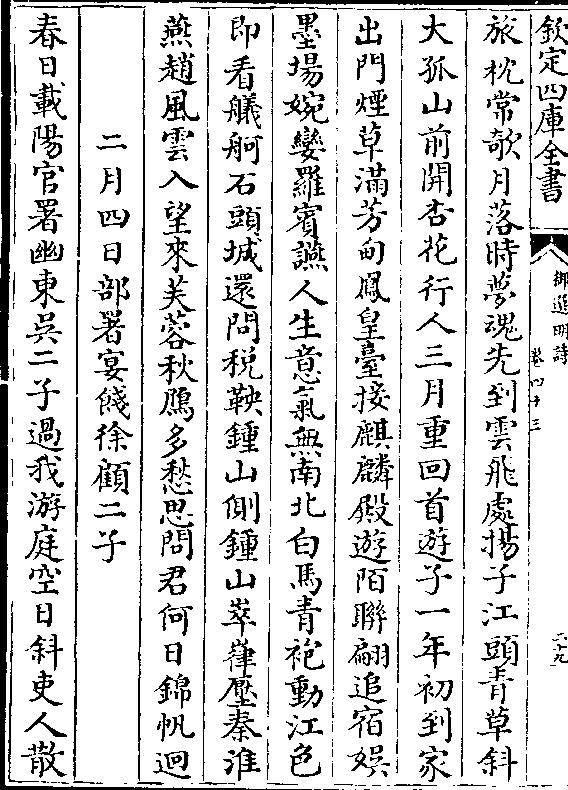 欽定四庫全書
御選明詩
卷四十三
二十九
旅枕常欹月落時夢魂先到雲飛處揚子江頭青草斜
大孤山前開杏花行人三月重回首遊子一年初到家
出門煙草滿芳甸鳳皇臺接麒麟殿遊陌聯翩追宿娯
墨場婉孌羅賓讌人生意氣無南北白馬青袍動江色
即看艤舸石頭城還問稅鞅鍾山側鍾山崒嵂壓秦淮
燕趙風雲入望來芙蓉秋鴈多愁思問君何日錦帆迴
二月四日部署宴餞徐顧二子
春日載陽官署幽東吳二子過我游庭空日斜吏人散